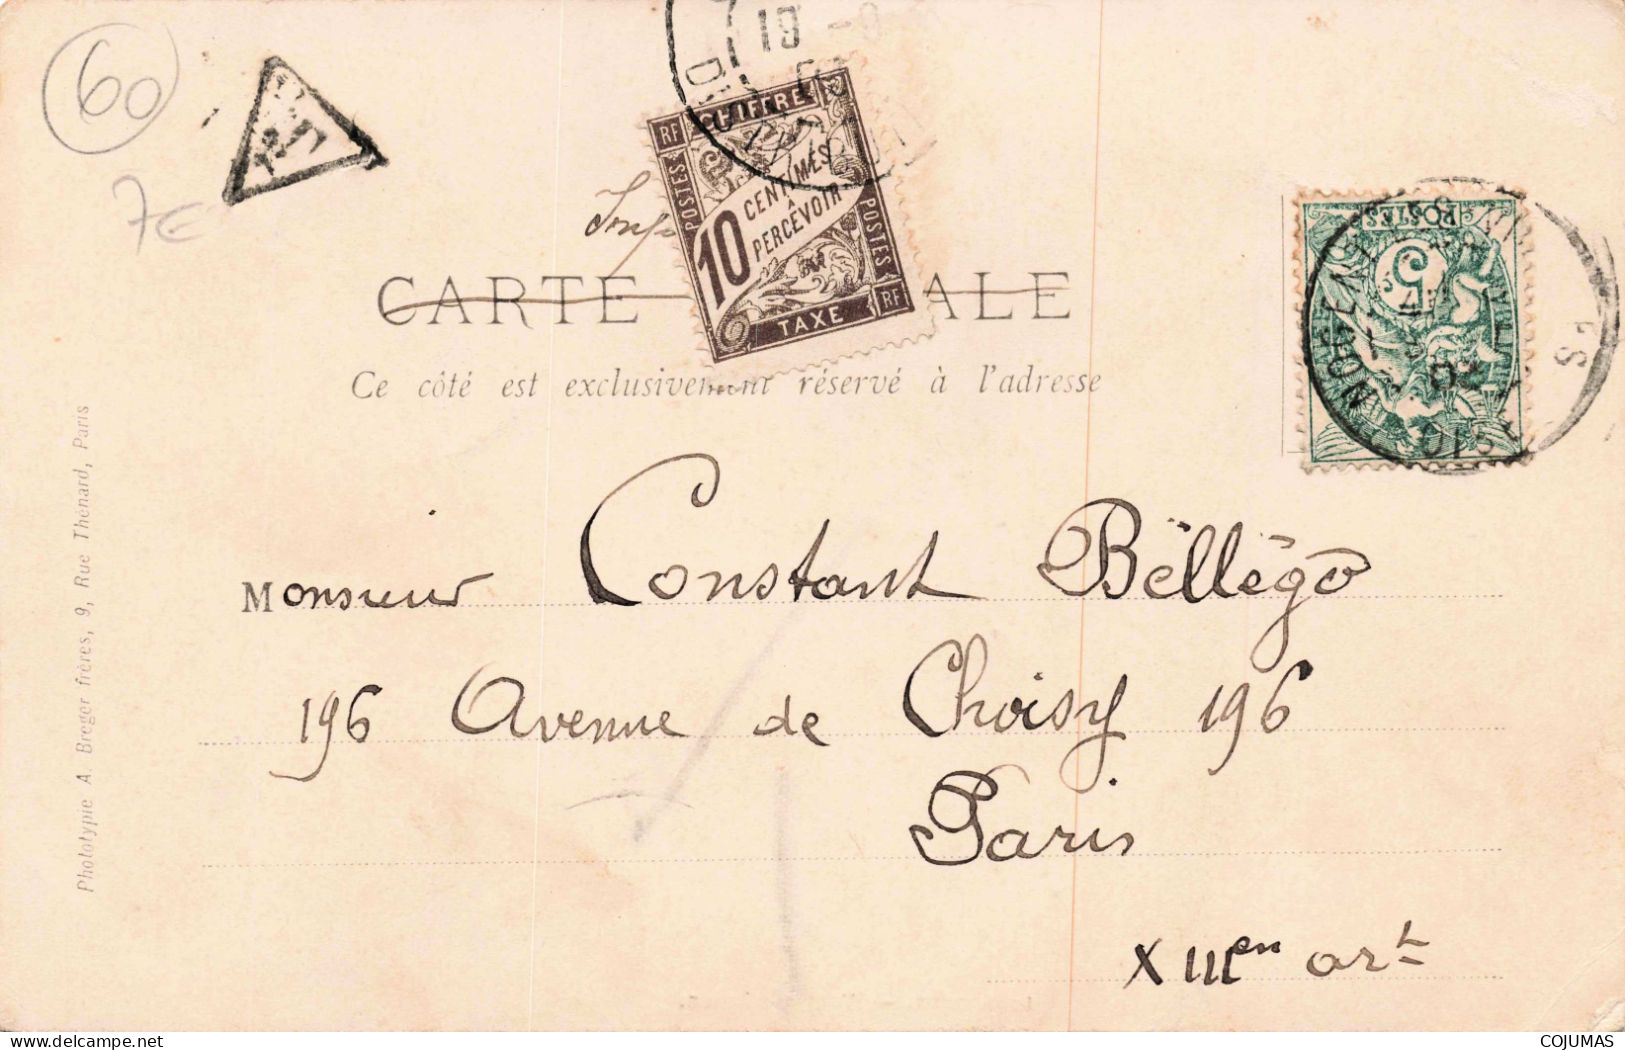 60
7€
T
CHIFFRE
RF
POSTES
10
CENTIMES
À
PERCEVOIR
POSTES
RF
TAXE
POSTES
5
CARTE ALE
Ce côté est exclusivement réservé à l'adresse
Monsieur Constant Bèllégo
196 Avenue de Choisy 196
Paris
XIIIen art
Phototypie A. Breger frères, 9, Rue Thénard, Paris
COJUMAS